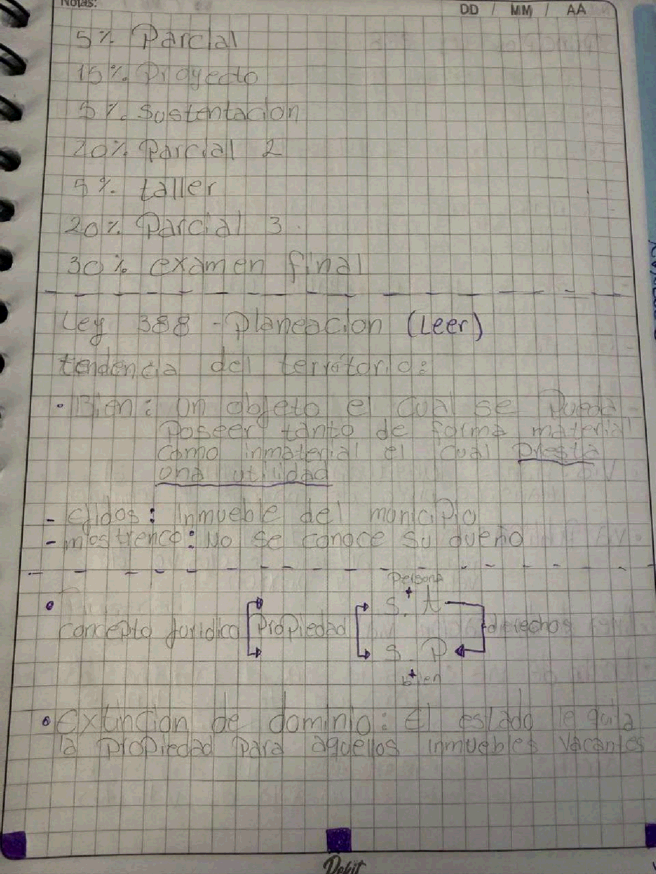 Notas:
DD / MM / AA
5% Parcial
15% Proyecto
5% Sustentacion
20% Parcial 2
5% taller
20% Parcial 3
30% examen final
Ley 388 - Planeacion (Leer)
tendencia del territorio:
• Bien: un objeto el cual se pueda
poseer tanto de forma material
como inmaterial el cual presta
una utilidad
- ejidos: inmueble del municipio
- mostrenco: No se conoce su dueño
Persona
+
S. A
• concepto juridico Propiedad derechos
S. P
+
bien
• Extincion de dominio: El estado le quita
la propiedad para aquellos inmuebles vacantes